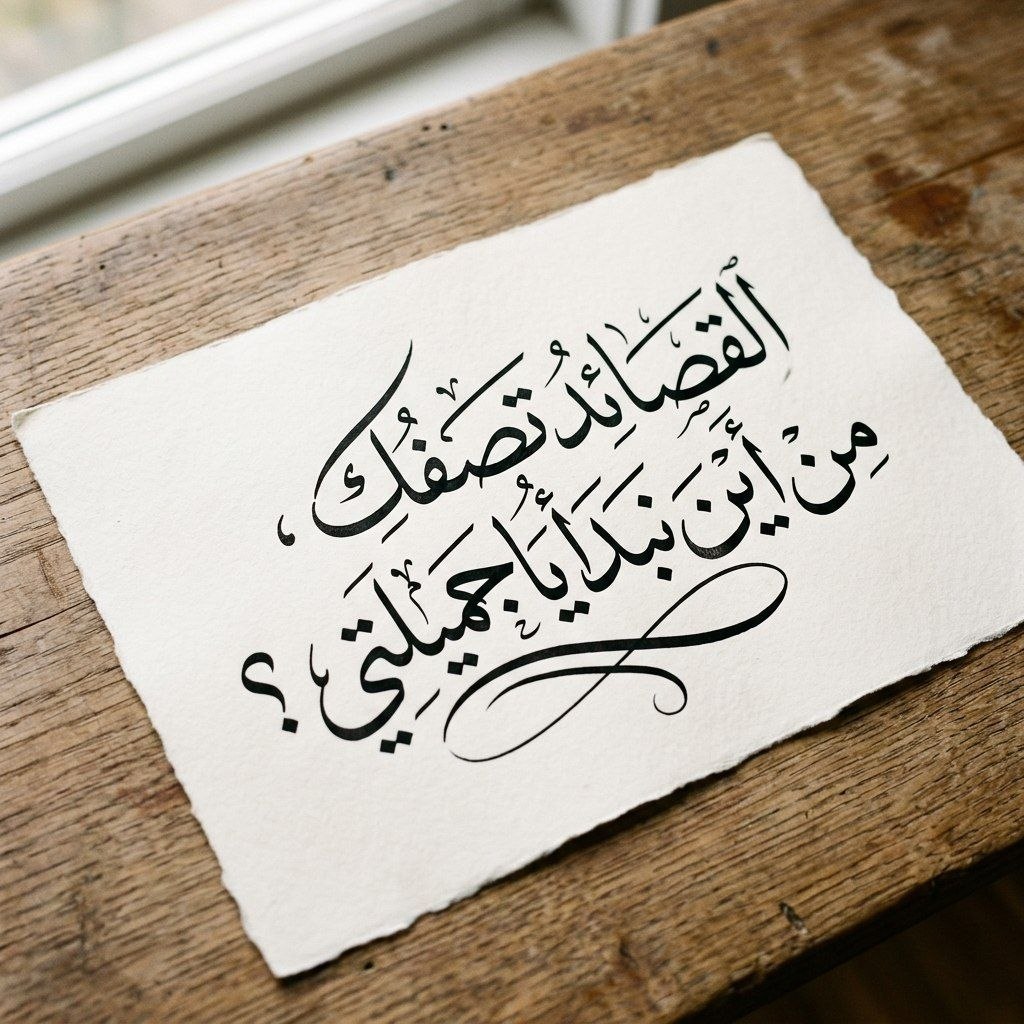 القصائدُ تصفُكِ،
مِنْ أَيْنَ نَبْدَأُ يَا جَمِيلَتِي؟